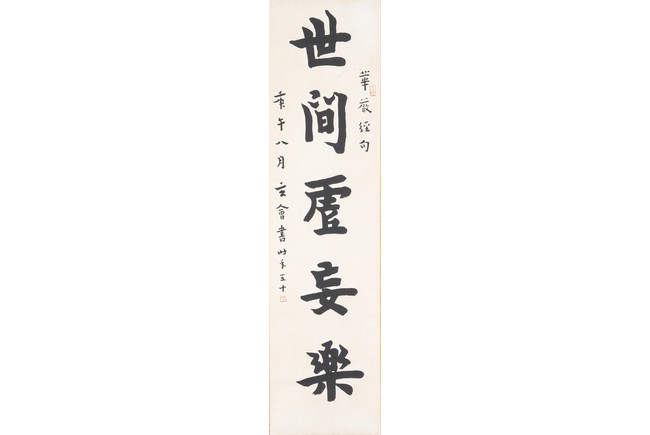 華嚴經句
世間虛妄樂
庚午八月 玄會書時年十